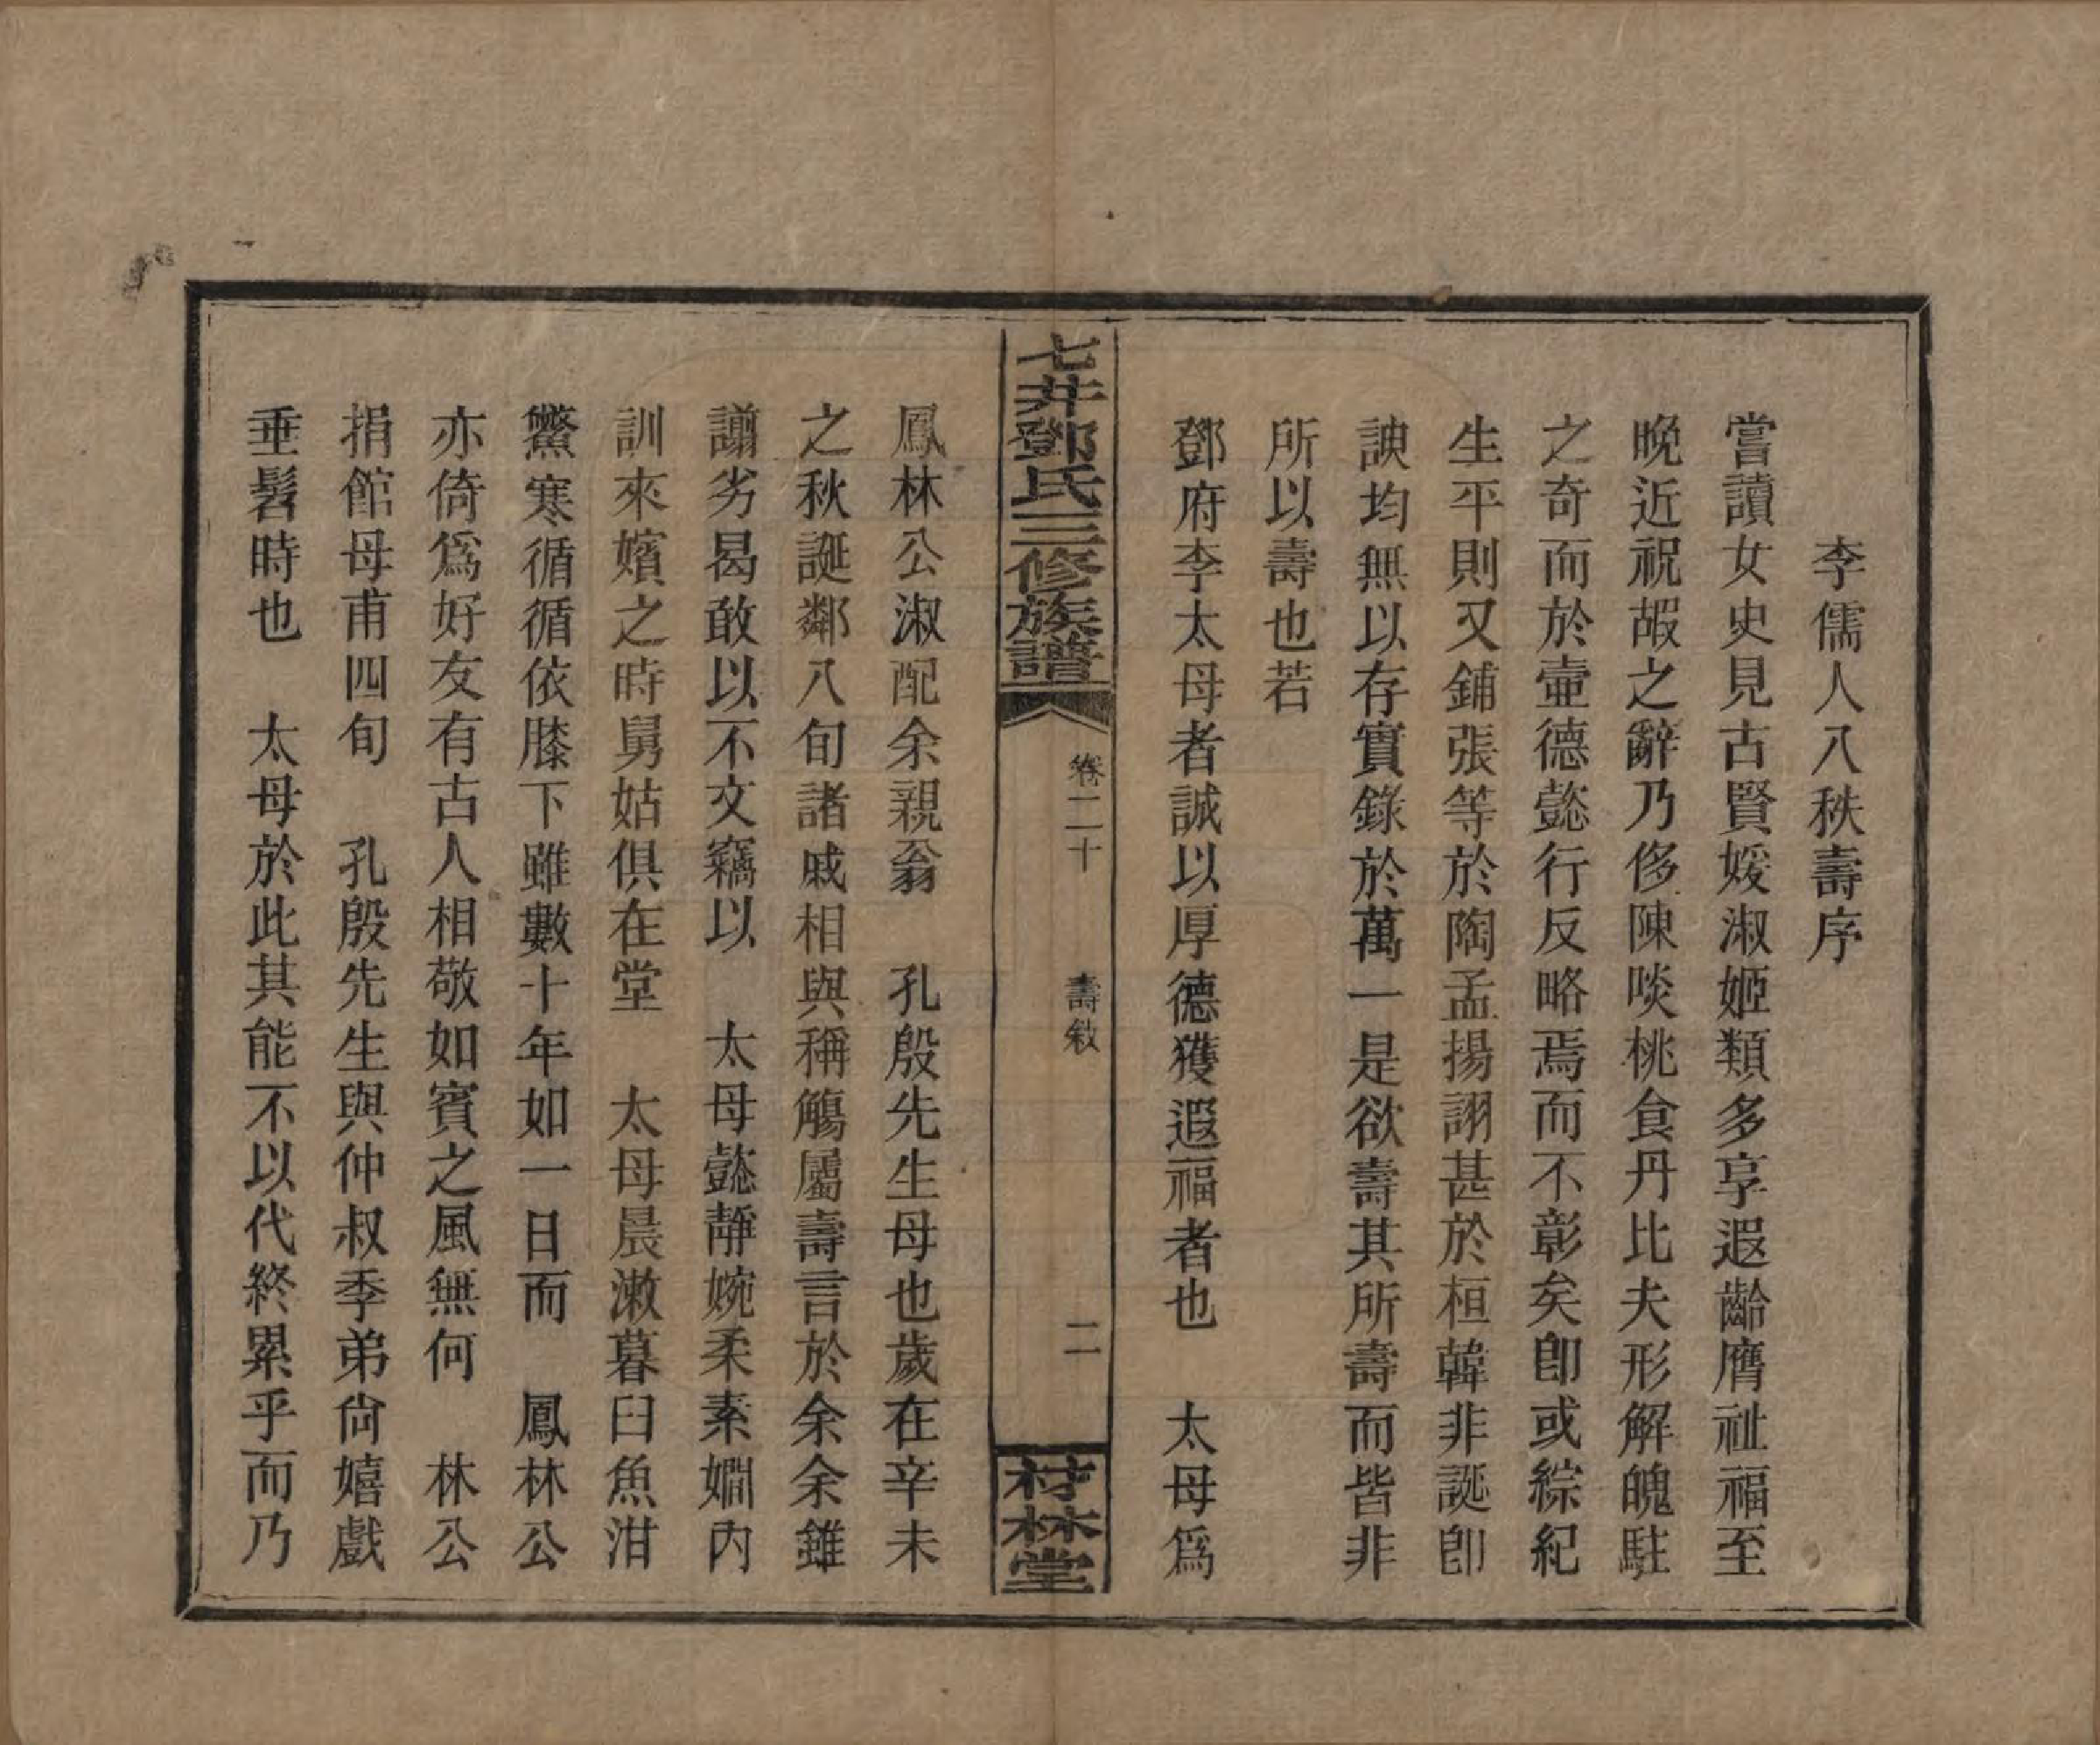 李儒人八秩壽序
嘗讀女史見古賢媛淑姬類多享遐齡膺祉福至
晚近祝嘏之辭乃侈陳啖桃食丹比夫形解魄駐
之奇而於壼德懿行反略焉而不彰矣卽或綜紀
生平則又鋪張等於陶孟揚詡甚於桓韓非誕卽
諛均無以存實錄於萬一是欲壽其所壽而皆非
所以壽也若
鄧府李太母者誠以厚德獲遐福者也　太母爲
七井鄧氏三修族譜　卷二十　壽敘　二　村林堂
鳳林公淑配余親翁　孔殷先生母也歲在辛未
之秋誕鄰八旬諸戚相與稱觴屬壽言於余余雖
譾劣曷敢以不文竊以　太母懿靜婉柔素嫺內
訓來嬪之時舅姑俱在堂　太母晨漱暮臼魚泔
鱉寒循循依膝下雖數十年如一日而　鳳林公
亦倚爲好友有古人相敬如賓之風無何　林公
捐館母甫四旬　孔殷先生與仲叔季弟尙嬉戲
垂髫時也　太母於此其能不以代終累乎而乃